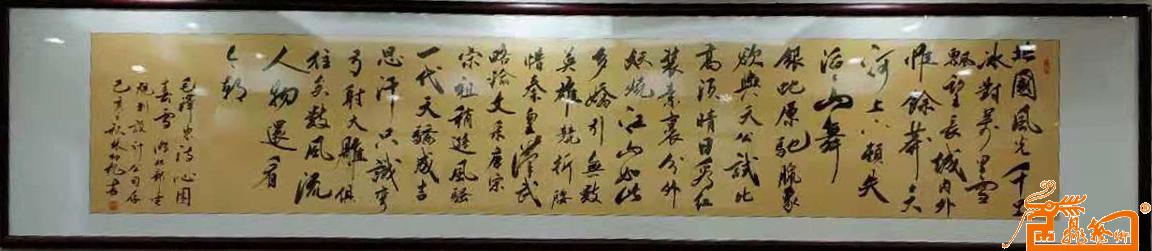 北國風光千里
冰封萬里雪
飄望長城內外
惟餘莽莽大
河上下頓失
滔滔山舞
銀蛇原馳臘象
欲與天公試比
高須晴日看紅
裝素裹分外
妖嬈江山如此
多嬌引無數
英雄競折腰
惜秦皇漢武
略輸文采唐宗
宋祖稍遜風騷
一代天驕成吉
思汗只識彎
弓射大雕俱
往矣數風流
人物還看
今朝
毛澤東詩沁園
春雪
規劃設計公司存
己亥秋